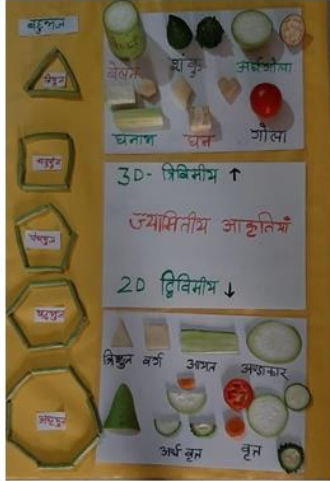 बहुभुज
त्रिभुज
चतुर्भुज
पंचभुज
षट्भुज
अष्टभुज
बेलन
शंकु
अर्धगोला
घनाभ
घन
गोला
3D- त्रिविमीय ↑
ज्यामितीय आकृतियाँ
2D द्विविमीय ↓
त्रिभुज वर्ग आयत अण्डाकार
अर्ध वृत्त वृत्त